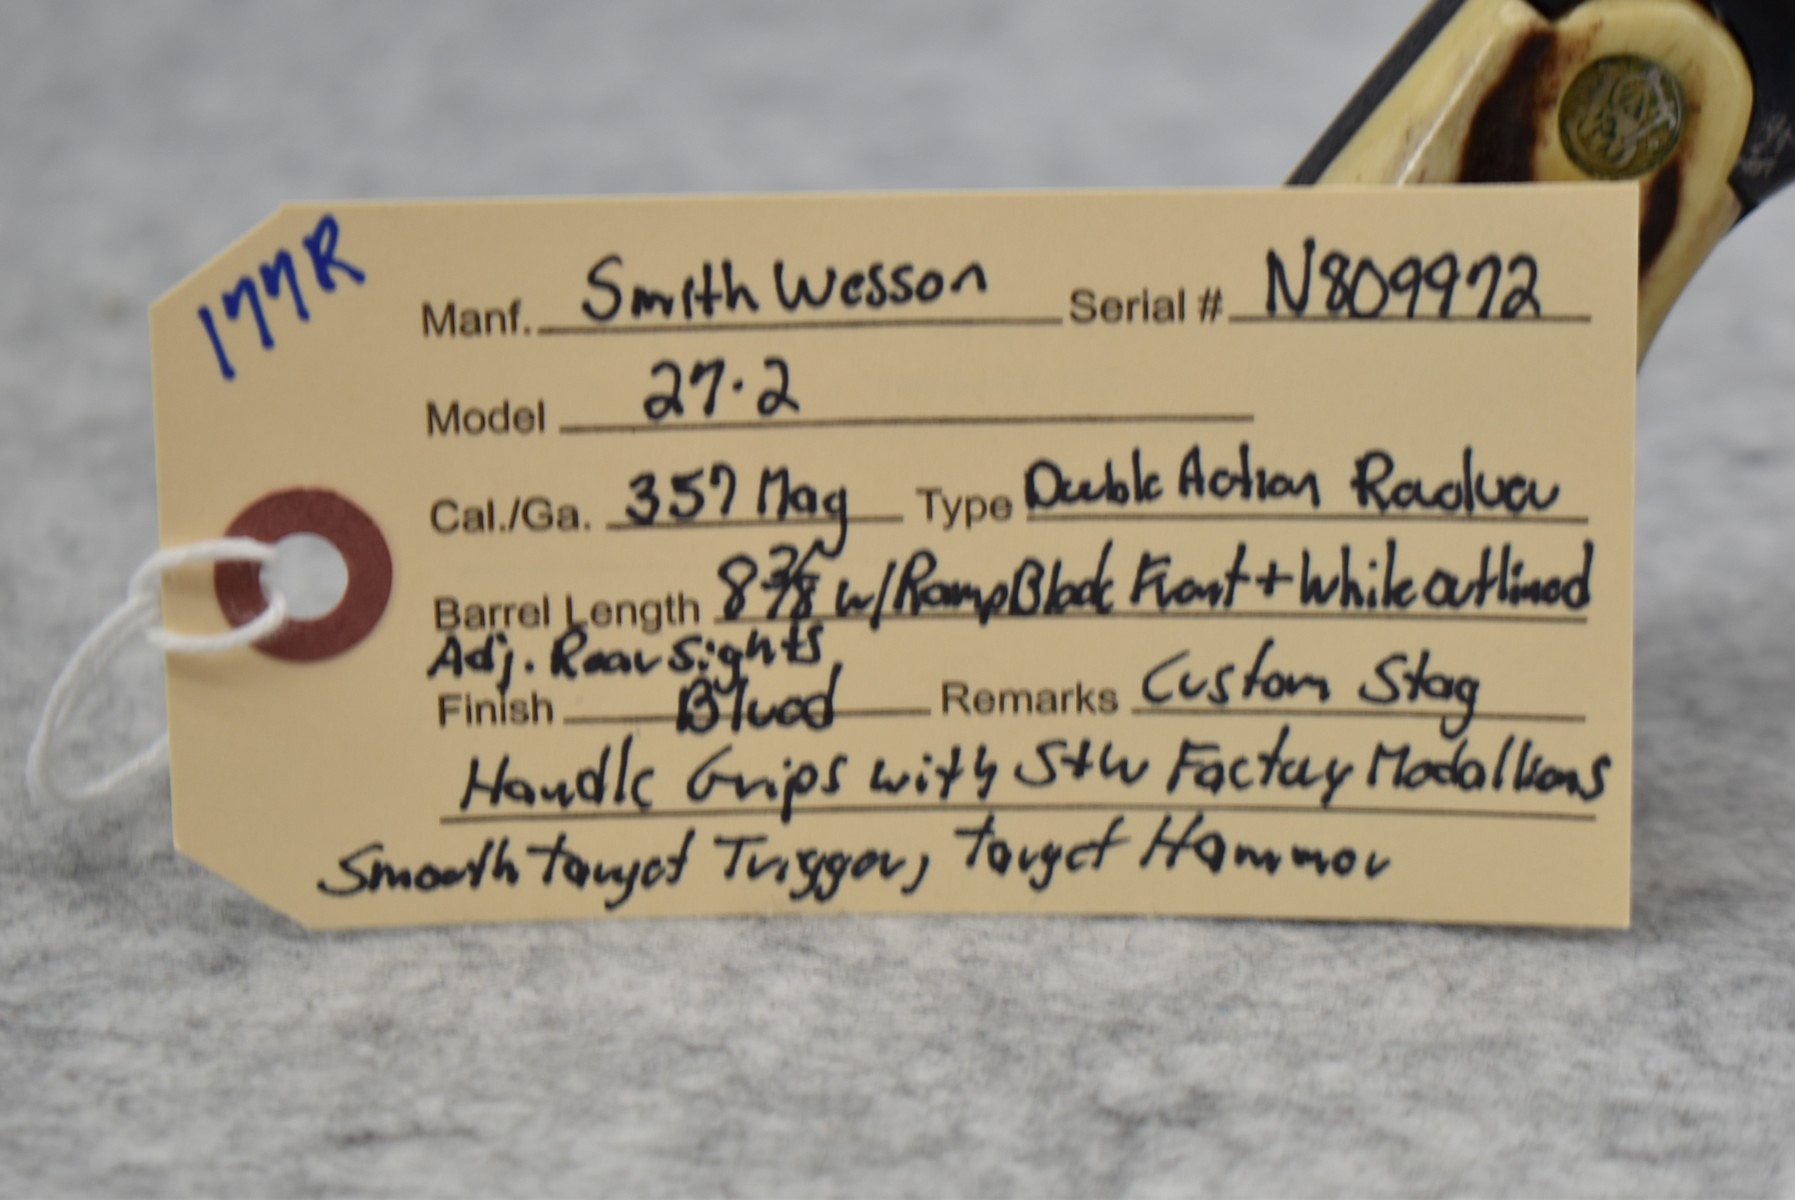 177R
Manf. Smith Wesson Serial # N809972
Model 27.2
Cal./Ga. 357 Mag Type Double Action Revolver
Barrel Length 8 3/8 w/ Ramp Black Front + White outlined
Adj. Rear Sights
Finish Blued Remarks Custom Stag
Handle Grips with S+W Factory Medallions
Smooth Target Trigger, Target Hammer